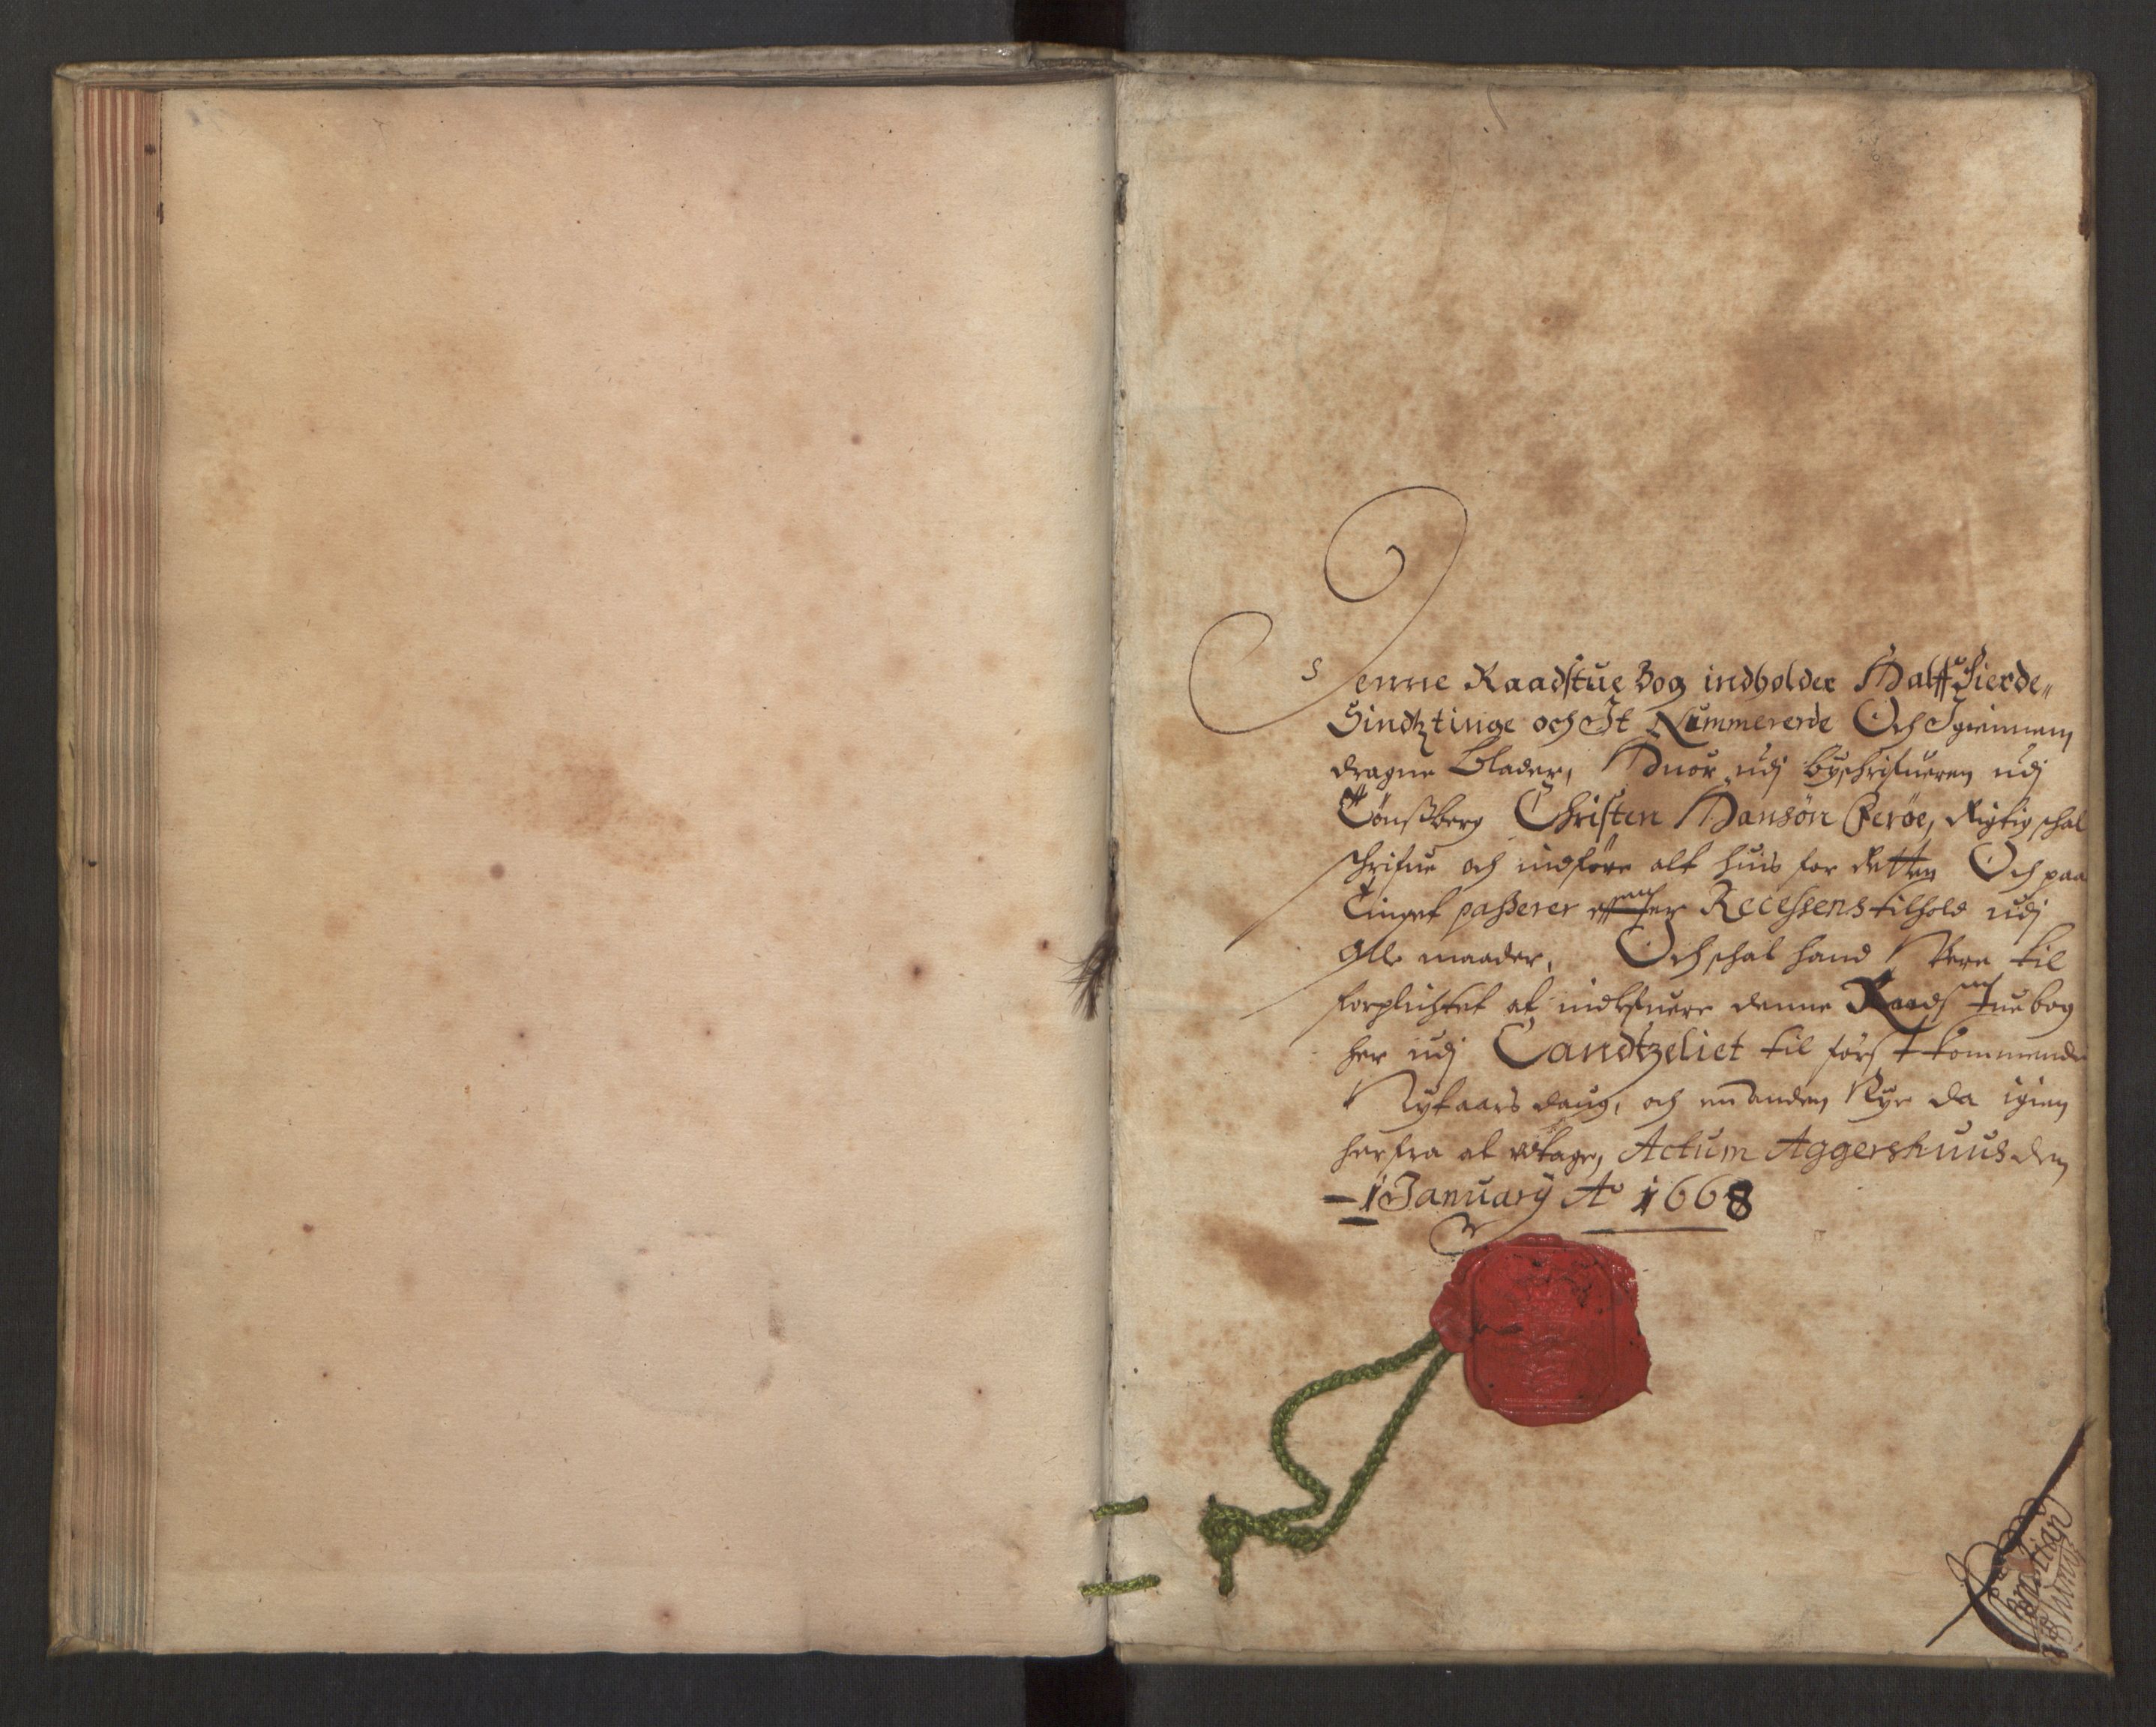 Denne Raadstue Bog indholder Halff Fierde,,
Sindtztinge och It Nummererde Och Igiennem
dragne blader, Huor udj byschrifueren udj
Tønßberg Christen Hansön Ferøe, Rigtig schal
schrifue och indføre alt huis for Retten Och paa
Tinget passerer effter Recessens tilhold udj
alle maader, Och schal hand Vere til
forplichtet at indlefuere denne Raadstuebog
her udj Candtzeliet til först kommende
Nytaars daug, och en anden Nye da igien
herfra at udtage, Actum Aggershuus den
1 January Ao 1668